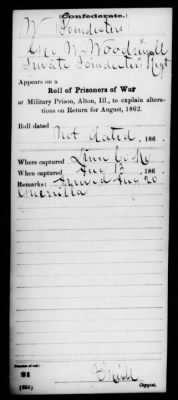 Confederate.
W Poindexter
Geo W Woodruff
Private Poindexter's Regt
Appears on a
Roll of Prisoners of War
at Military Prison, Alton, Ill., to explain altera-
tions on Return for August, 1862.
Roll dated
Not dated, 186 .
Where captured Linn Co Mo
When captured Aug 13, 186 .
Remarks: Aug 20
Guerilla
Number of roll:
21
(652)
Copyist.